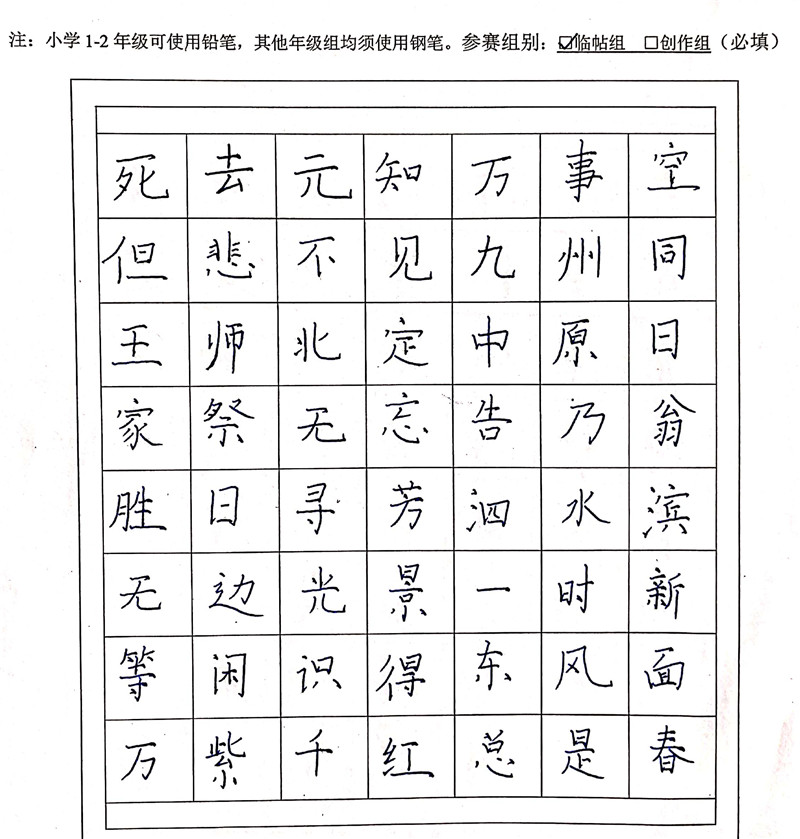 注：小学1-2年级可使用铅笔，其他年级组均须使用钢笔。参赛组别：☑临帖组 □创作组（必填）
死去元知万事空
但悲不见九州同
王师北定中原日
家祭无忘告乃翁
胜日寻芳泗水滨
无边光景一时新
等闲识得东风面
万紫千红总是春